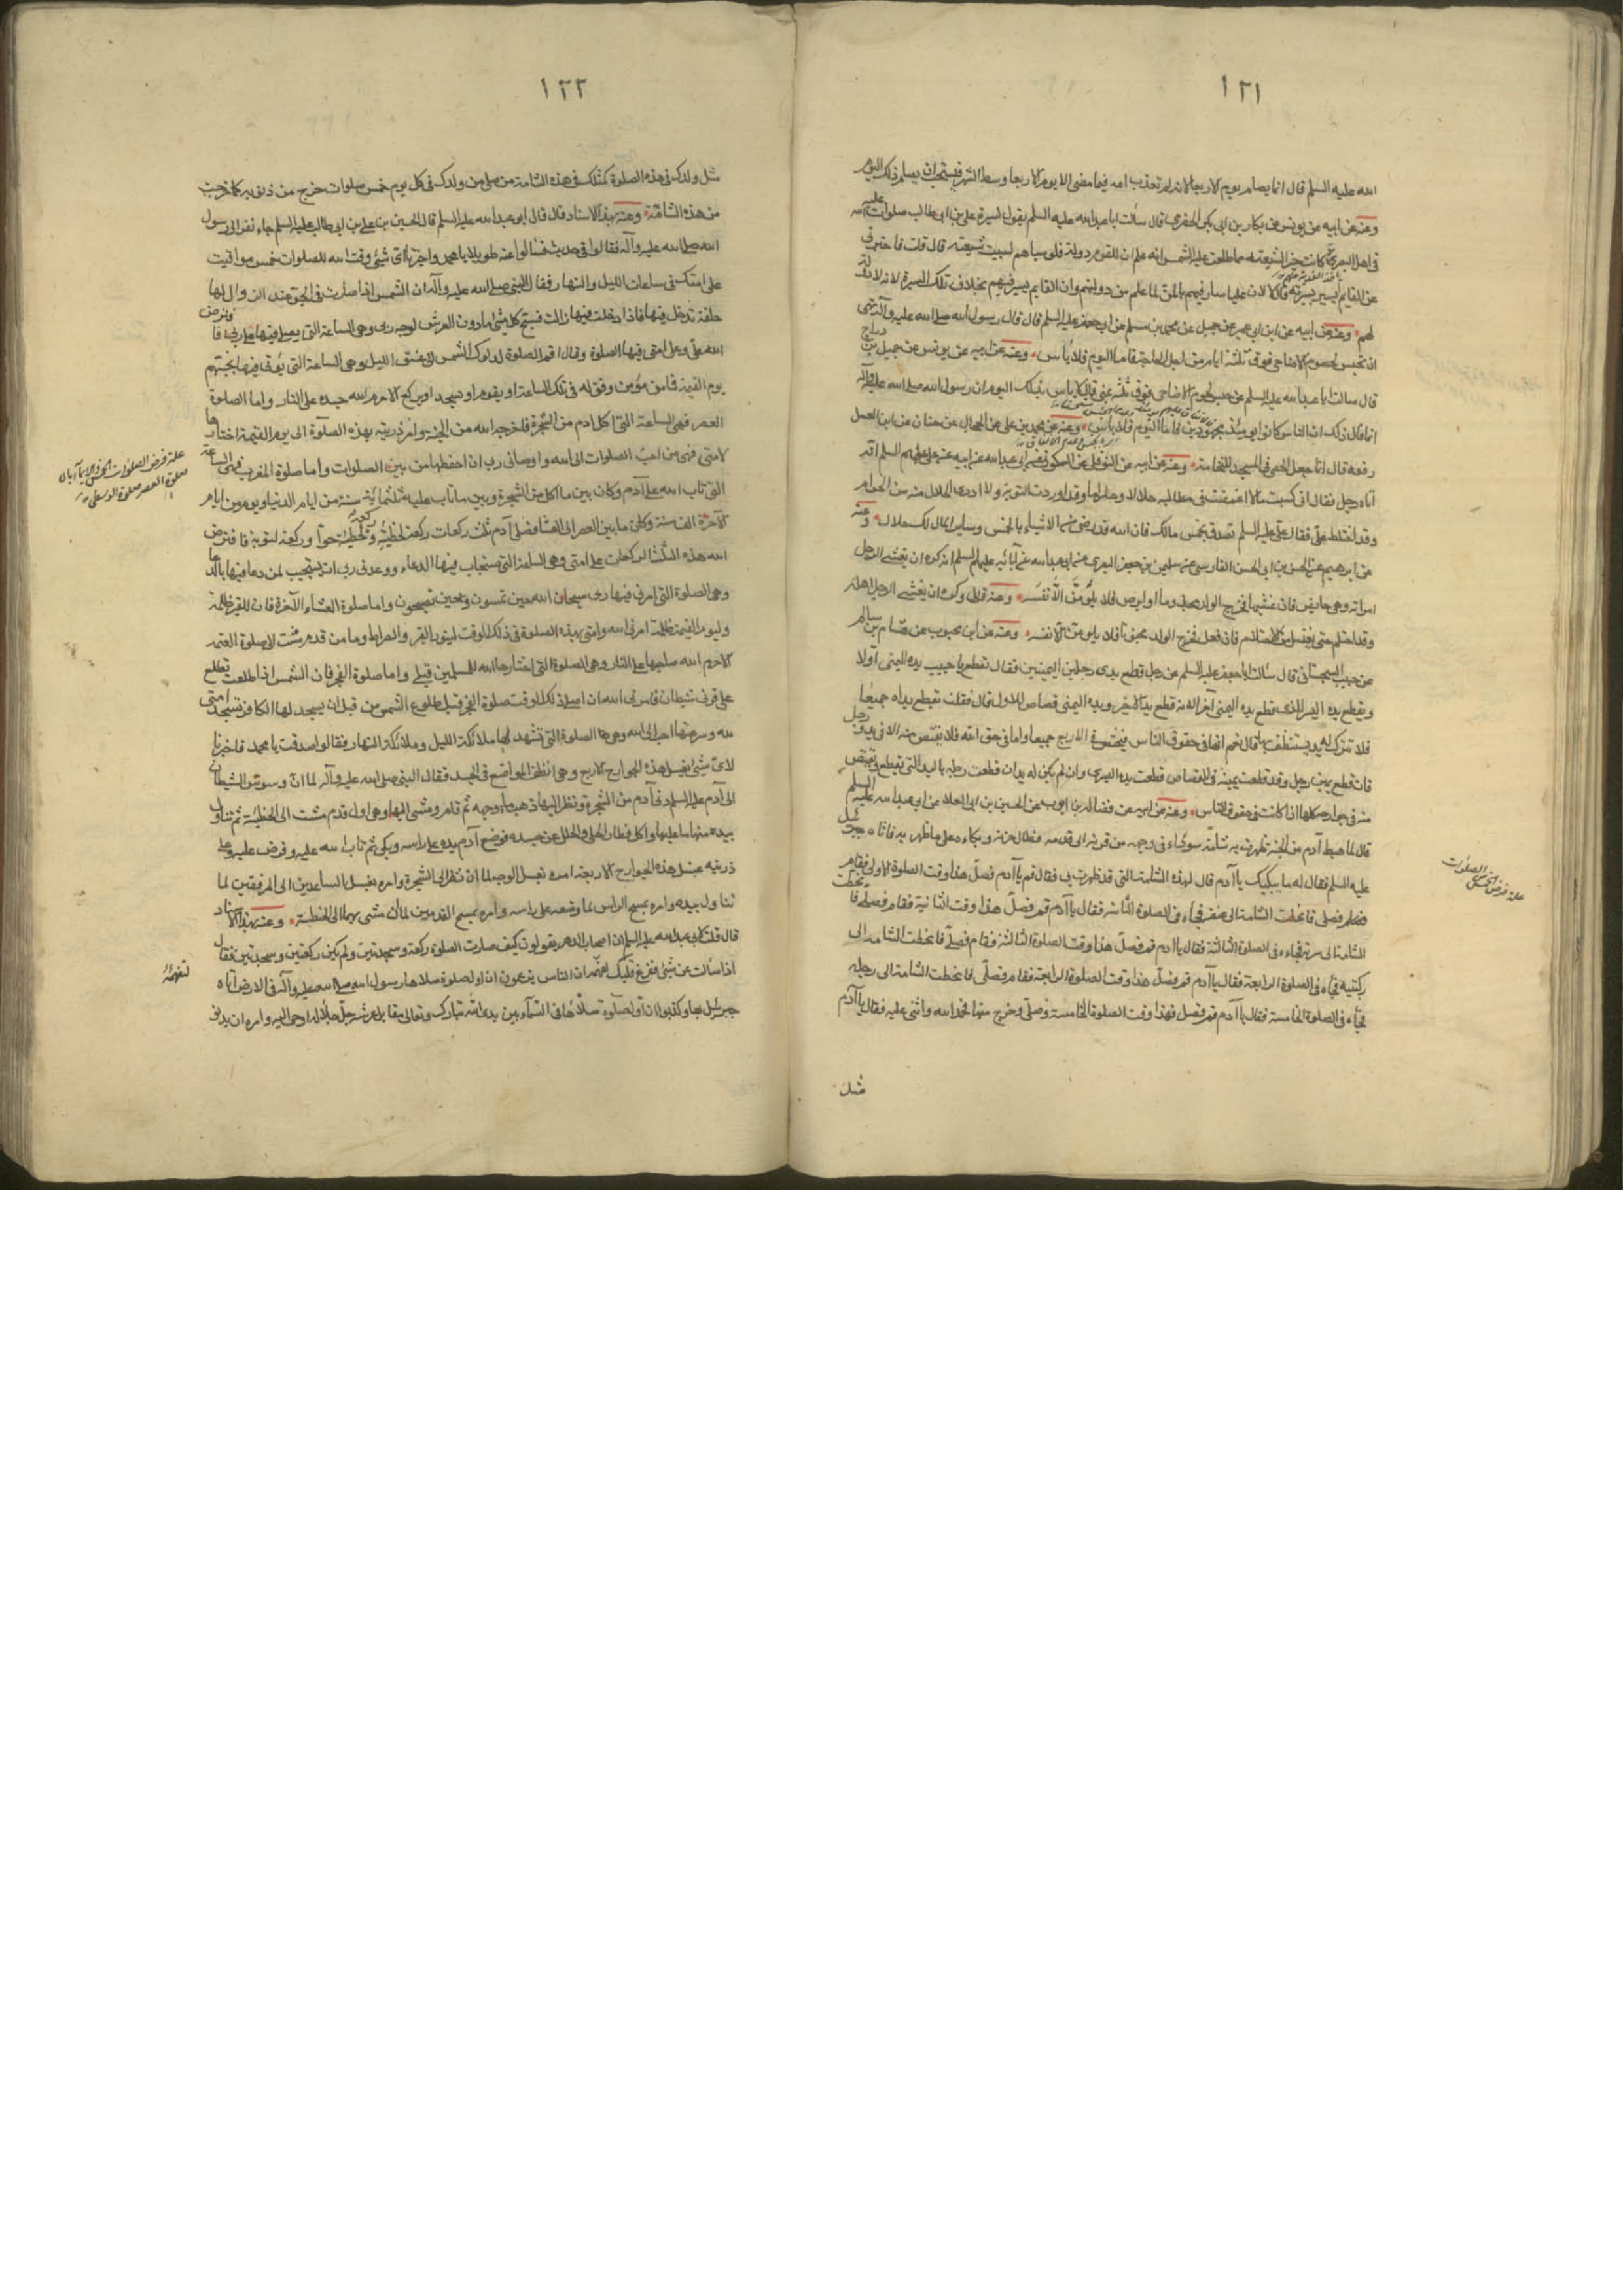 ١٢١
الله عليه السلم قال انما يصام يوم الاربعا لانه لم تعذب امه فيما مضى الا يوم الاربعا وسط الشهر فيستحب ان يصام ذلك اليوم
وعنه عن ابيه عن يونس عن بكار بن ابى بكر الحضرمى قال سألت ابا عبد الله عليه السلم يقول لسيرة على بن ابى طالب صلوات الله عليه
فى اهل البصرة كانت خير الشيعته مما طلعت عليه الشمس انه علم ان للقوم دولة فلو سباهم لسبيت شيعته قال قلت فاخبرنى
عن القايم يسير بسيرته قال لا لان عليا سار فيهم بالمن لما علم من دولتهم وان القايم يسير فيهم بخلاف تلك السيرة لانه لا دولة
لهم وعنه عن ابيه عن ابن ابى عمير عن جميل عن محمد بن مسلم عن ابى جعفر عليه السلم قال قال رسول الله صلى الله عليه وآله نهى
ان تحبس لحوم الاضاحى فوق ثلثة ايام من اجل الحاجة فاما اليوم فلا بأس وعنه عن ابيه عن يونس عن جميل بن دراج
قال سالت ابا عبد الله عليه السلم عن حبس لحوم الاضاحى فوق ثلثة بمنى قال لا باس بذلك اليوم ان رسول الله صلى الله عليه وآله
انما قال ذلك ان الناس كانوا يومئذ مجهودين فاما اليوم فلا بأس وعنه عن محمد بن على عن الحجال عن حنان عن ابن العسل
رفعه قال انما جعل الحصى فى المسجد للنخامة وعنه عن ابيه عن النوفلى عن السكونى عن ابى عبد الله عن ابيه عن على عليهم السلم انه
اتاه رجل فقال انى كسبت مالا اغمضت فى مطالبه حلالا وحراما وقد اردت التوبة ولا ادرى الحلال منه من الحرام
وقد اختلط على فقال على عليه السلم تصدق بخمس مالك فان الله قد رضى من الاشياء بالخمس وساير المال لك حلال وعنه
عن ابرهيم عن الحسن بن ابى الحسن الفارسى عن سليمن بن جعفر البصرى عن ابى عبد الله عن آبائه عليهم السلم انه كره ان يغشى الرجل
امراته وهى حايض فان غشيها فخرج الولد مجذوما او ابرص فلا يلومن الا نفسه وعنه قال وكره ان يغشى الرجل اهله
وقد احتلم حتى يغتسل من الاحتلام فان فعل فخرج الولد مجنونا فلا يلومن الا نفسه وعنه عن ابن محبوب عن هشام بن سالم
عن حبيب السجستانى قال سألت ابا جعفر عليه السلم عن رجل قطع يدى رجلين اليمينين فقال تقطع يا حبيب يده اليمنى اولا
ويقطع يده اليسرى للذى قطع يده اليمنى آخرا لانه قطع يد الاخر ويده اليمنى قصاص للاول قال فقلت تقطع يداه جميعا
فلا تترك له يد يستنظف بها قال نعم انها فى حقوق الناس فيقتص فى الاربع جميعا واما فى حق الله فلا يقتص منه الا فى يد ورجل
فان قطع يمين رجل وقد قطعت يمينه فى القصاص قطعت يده اليسرى وان لم يكن له يدان قطعت رجله باليد التى تقطع ويقتص
منه فى جوارحه كلها اذا كانت فى حقوق الناس وعنه عن ابيه عن فضالة بن ايوب عن الحسين بن ابى العلا عن ابى عبد الله عليه السلم
قال لما هبط آدم من الجنة ظهرت به شامة سوداء فى وجهه من قرنه الى قدمه فطال حزنه وبكاءه على ما ظهر به فاتاه جبرئيل
عليه السلم فقال له ما يبكيك يا آدم قال لهذه الشامة التى قد ظهرت بى فقال قم يا آدم فصل هذا وقت الصلوة الاولى فقام
فصلى فانحطت الشامة الى عنقه فجاءه فى الصلوة الثانية فقال يا آدم قم فصل هذا وقت الثانية فقام فصلى فانحطت
الشامة الى سرته فجاءه فى الصلوة الثالثة فقال يا آدم قم فصل هذا وقت الصلوة الثالثة فقام فصلى فانحطت الشامة الى
ركبتيه فجاءه فى الصلوة الرابعة فقال يا آدم قم فصل هذا وقت الصلوة الرابعة فقام فصلى فانحطت الشامة الى رجليه
فجاءه فى الصلوة الخامسة فقال يا آدم قم فصل فهذا وقت الصلوة الخامسة فصلى وخرج منها فحمد الله واثنى عليه فقال يا آدم
مثل
علة فرض الخمس الصلوات
١٢٢
مثل ولدك فى هذه الصلوة كمثلك فى هذه الشامة من صلى من ولدك فى كل يوم خمس صلوات خرج من ذنوبه كما خرجت
من هذه الشامة وعنه بهذا الاسناد قال قال ابو عبد الله عليه السلم قال الحسين بن على بن ابى طالب عليه السلم جاء نفر الى رسول
الله صلى الله عليه وآله فقالوا فى حديث فسألوا عنه طويلا يا محمد واخبرنا لاى شئ وقت الله للصلوات خمس مواقيت
على امتك فى ساعات الليل والنهار فقال النبى صلى الله عليه وآله ان الشمس اذا صارت فى الجو عند الزوال لها
حلقة تدخل فيها فاذا دخلت فيها زالت فسبح كل شئ ما دون العرش لوجه ربى وهى الساعة التى يصلى فيها على ربى فافترض
الله على وعلى امتى فيها الصلوة وقال اقم الصلوة لدلوك الشمس الى غسق الليل وهى الساعة التى يؤتى فيها بجهنم
يوم القيمة فما من مؤمن وفق له فى تلك الساعة او يقوم او يسجد او يركع الا حرم الله جسده على النار واما الصلوة
العصر فهى الساعة التى اكل ادم من الشجرة فاخرجه الله من الجنة وامر ذريته بهذه الصلوة الى يوم القيمة اختارها
لامتى فهى من احب الصلوات الى الله واوصانى رب ان احفظها من بين الصلوات واما صلوة المغرب فهى الساعة
التى تاب الله على آدم وكان بين ما اكل من الشجرة وبين ما تاب عليه ثلثمائة سنة من ايام الدنيا ويوم من ايام
الآخرة الف سنة وكان ما بين العصر الى العشا فصلى آدم ثلث ركعات ركعة لخطيئته وركعة لخطيئة حوا وركعة لتوبته فافترض
الله هذه الثلث الركعات على امتى وهى الساعة التى تستجاب فيها الدعاء ووعدنى ربى ان يستجيب لمن دعا فيها بالدعا
وهى الصلوة التى امرنى فيها ربى سبحان الله حين تمسون وحين تصبحون واما صلوة العشاء الآخرة فان للقبر ظلمة
وليوم القيمة ظلمة امرنى الله وامتى بهذه الصلوة فى ذلك الوقت لينور القبر والصراط وما من قدم مشت الى صلوة العتمة
الا حرم الله صاحبها على النار وهى الصلوة التى اختارها الله للمسلمين قبلى واما صلوة الفجر فان الشمس اذا طلعت تطلع
على قرنى شيطان فامرنى الله ان اصلى ذلك الوقت صلوة الفجر قبل طلوع الشمس ومن قبل ان يسجد لها الكافر فتسجد امتى
لله وسرعتها احب الى الله وهى هذا الصلوة التى تشهد لها ملائكة الليل وملائكة النهار فقالوا صدقت يا محمد فاخبرنا
لاى شئ يغسل هذه الجوارح الاربع وهى انظف المواضع فى الجسد فقال النبى صلى الله عليه وآله لما ان وسوس الشيطان
الى آدم عليه السلم دنى آدم من الشجرة ونظر اليها ذهب ماء وجهه ثم قام ومشى اليها وهى اول قدم مشت الى الخطيئة ثم تناول
بيده منها ما عليها واكل فطار الحلى والحلل عن جسده فوضع آدم يده على راسه وبكى ثم تاب الله عليه وفرض عليه وعلى
ذريته غسل هذه الجوارح الاربعة امره بغسل الوجه لما ان نظر الى الشجرة وامره بغسل الساعدين الى المرفقين لما
تناول بيده وامره بمسح الراس لما وضعه على راسه وامره بمسح القدمين لما ان مشى بهما الى الخطيئة وعنه بهذا الاسناد
قال قلت لابى عبد الله عليه السلم ان اصحاب الدهر يقولون كيف صارت الصلوة ركعة وسجدتين ولم يكن ركعتين وسجدتين فقال
اذا سألت عن شئ ففرغ قلبك لتفهم ان الناس يزعمون ان اول صلوة صلاها رسول الله صلى الله عليه وآله فى الارض اتاه
جبرئيل بها وكذبوا ان اول صلوة صلاها فى السماء بين يدى الله تبارك وتعالى مقابل عرشه جل جلاله اوحى اليه وامره ان يدنو
علة فرض الصلوات الخمس والايمآ بان
صلوة العصر صلوة الوسطى
لتفهمه